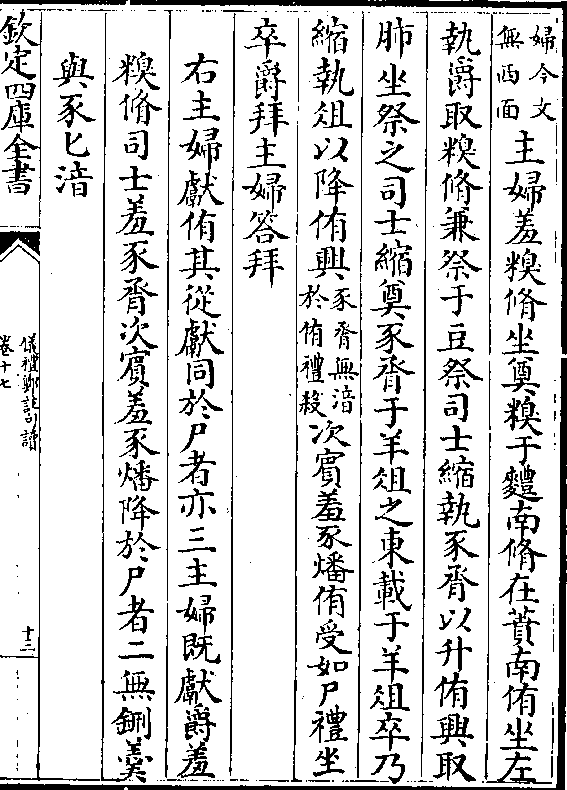 婦今文
無西面
主婦羞糗脩坐奠糗于麷南脩在蕡南侑坐左
執爵取糗脩兼祭于豆祭司士縮執豕脀以升侑興取
肺坐祭之司士縮奠豕脀于羊俎之東載于羊俎卒乃
縮執俎以降侑興
豕脀無湆
於侑禮殺
次賓羞豕燔侑受如尸禮坐
卒爵拜主婦答拜
右主婦獻侑其從獻同於尸者亦三主婦既獻爵羞
糗脩司士羞豕脀次賓羞豕燔降於尸者二無鉶羹
與豕匕湆
欽定四庫全書
儀禮鄭註句讀
卷十七
十三